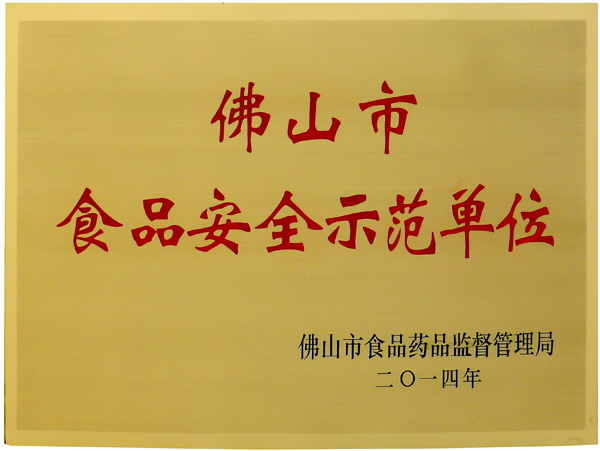 佛山市
食品安全示范单位
佛山市食品药品监督管理局
二〇一四年